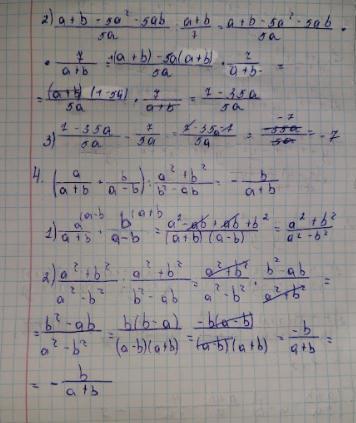 2) (a+b-5a²-5ab)/5a : (a+b)/7 = (a+b-5a²-5ab)/5a ·
· 7/(a+b) = ((a+b)-5a(a+b))/5a · 7/(a+b) =
= ((a+b)(1-5a))/5a · 7/(a+b) = (7-35a)/5a
3) (7-35a)/5a - 7/5a = (7-35a-7)/5a = -35a/5a = -7
4. (a/(a+b) + b/(a-b)) : (a²+b²)/(b²-ab) = - b/(a+b)
1) a/(a+b) (a-b + b/(a-b) (a+b = (a²-ab+ab+b²)/((a+b)(a-b)) = (a²+b²)/(a²-b²)
2) (a²+b²)/(a²-b²) : (a²+b²)/(b²-ab) = (a²+b²)/(a²-b²) · (b²-ab)/(a²+b²) =
= (b²-ab)/(a²-b²) = b(b-a)/((a-b)(a+b)) = -b(a-b)/((a-b)(a+b)) = -b/(a+b) =
= - b/(a+b)